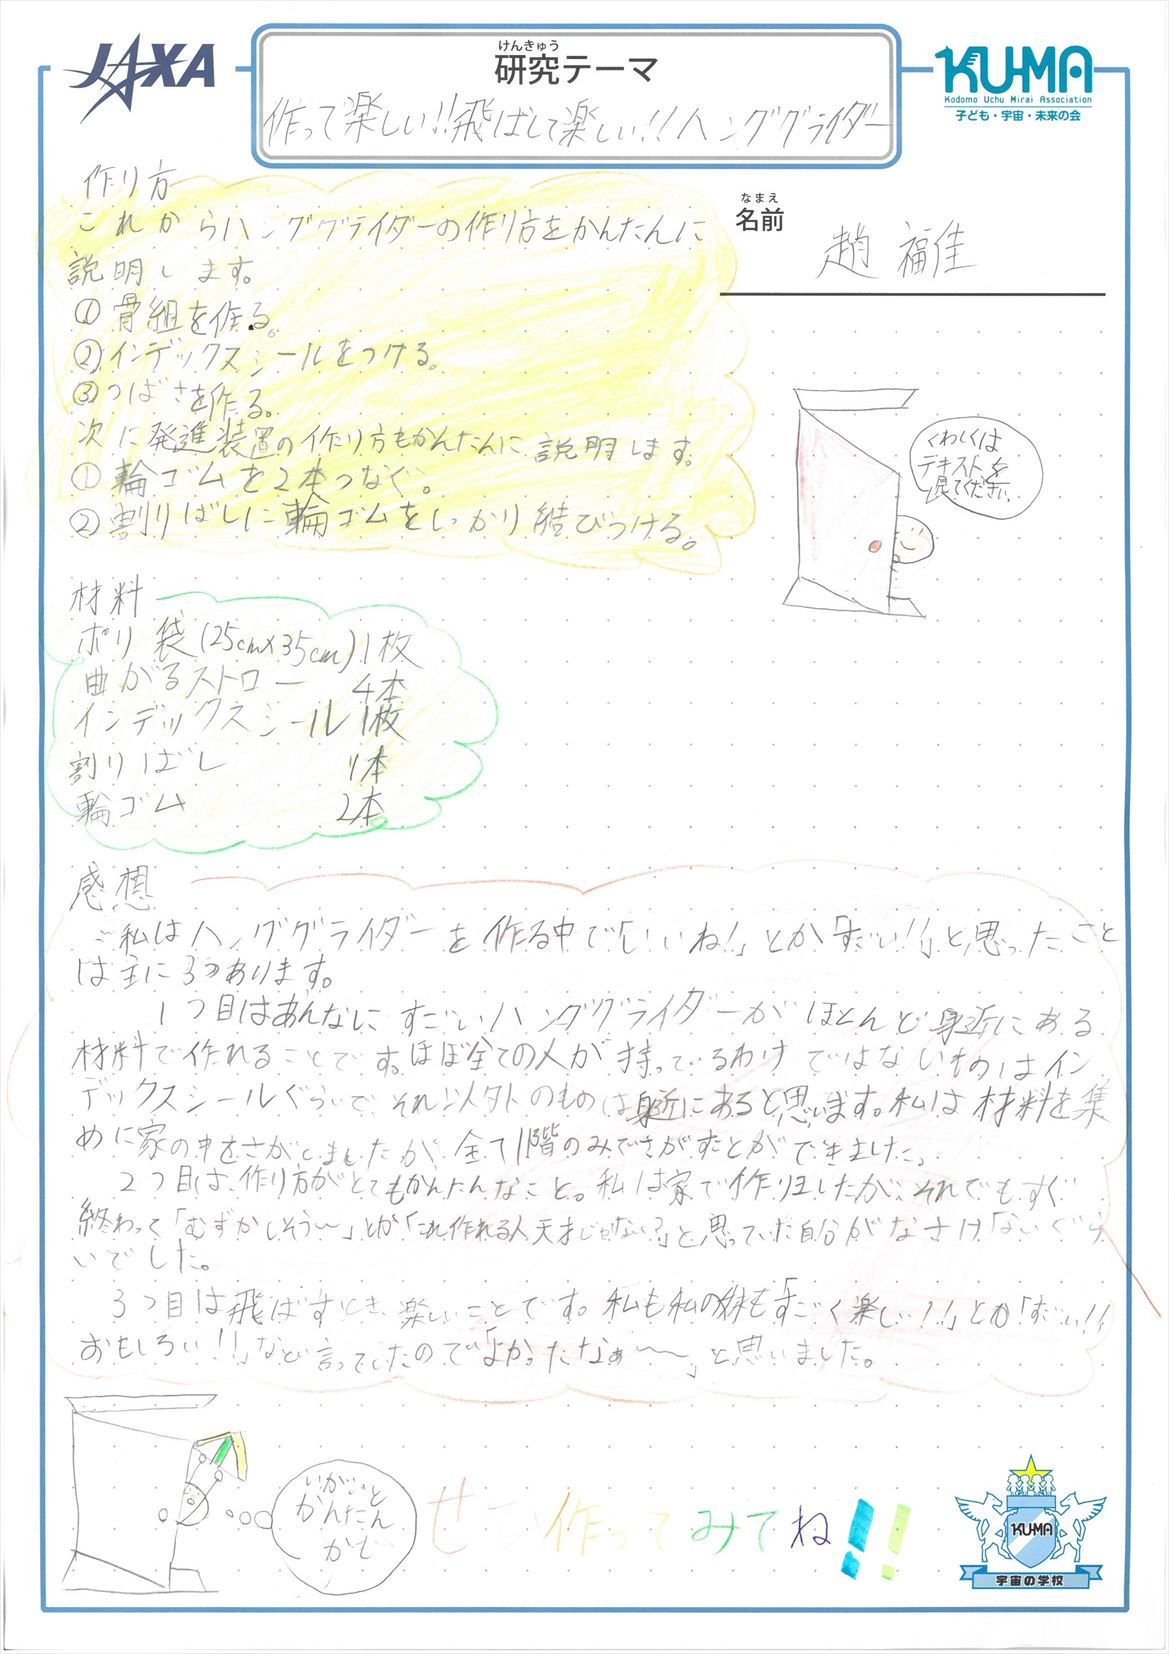 JAXA
けんきゅう
研究テーマ
KU-MA
Kodomo Uchu Mirai Association
子ども・宇宙・未来の会
作って楽しい!!飛ばして楽しい!!ハンググライダー
なまえ
名前
趙 福佳
作り方
これからハンググライダーの作り方をかんたんに
説明します。
①骨組を作る。
②インデックスシールをつける。
③つばさを作る。
次に発進装置の作り方もかんたんに説明します。
①輪ゴムを2本つなぐ。
②割りばしに輪ゴムをしっかり結びつける。
くわしくは
テキストを
見てください。
材料
ポリ袋(25cm×35cm)1枚
曲がるストロー 4本
インデックスシール 1枚
割りばし 1本
輪ゴム 2本
感想
私はハンググライダーを作る中で「いいね!」とか「すごい!!」と思ったこと
は主に3つあります。
1つ目はあんなにすごいハンググライダーがほとんど身近にある
材料で作れることです。ほぼ全ての人が持っているわけではないものはイン
デックスシールぐらいで、それ以外のものは身近にあると思います。私は材料を集
めに家の中をさがしましたが、全て1階のみでさがすことができました。
2つ目は、作り方がとてもかんたんなこと。私は家で作りましたが、それでもすぐ
終わって「むずかしそう〜」とか「これ作れる人天才じゃない?」と思っていた自分がなさけないぐら
いでした。
3つ目は飛ばすとき楽しいことです。私も私の妹も「すごく楽しい!!」とか「すごい!!
おもしろい!!」など言っていたので「よかったなぁ〜〜」と思いました。
いがいと
かんたん
かも
ぜひ作ってみてね!!
KU-MA
宇宙の学校